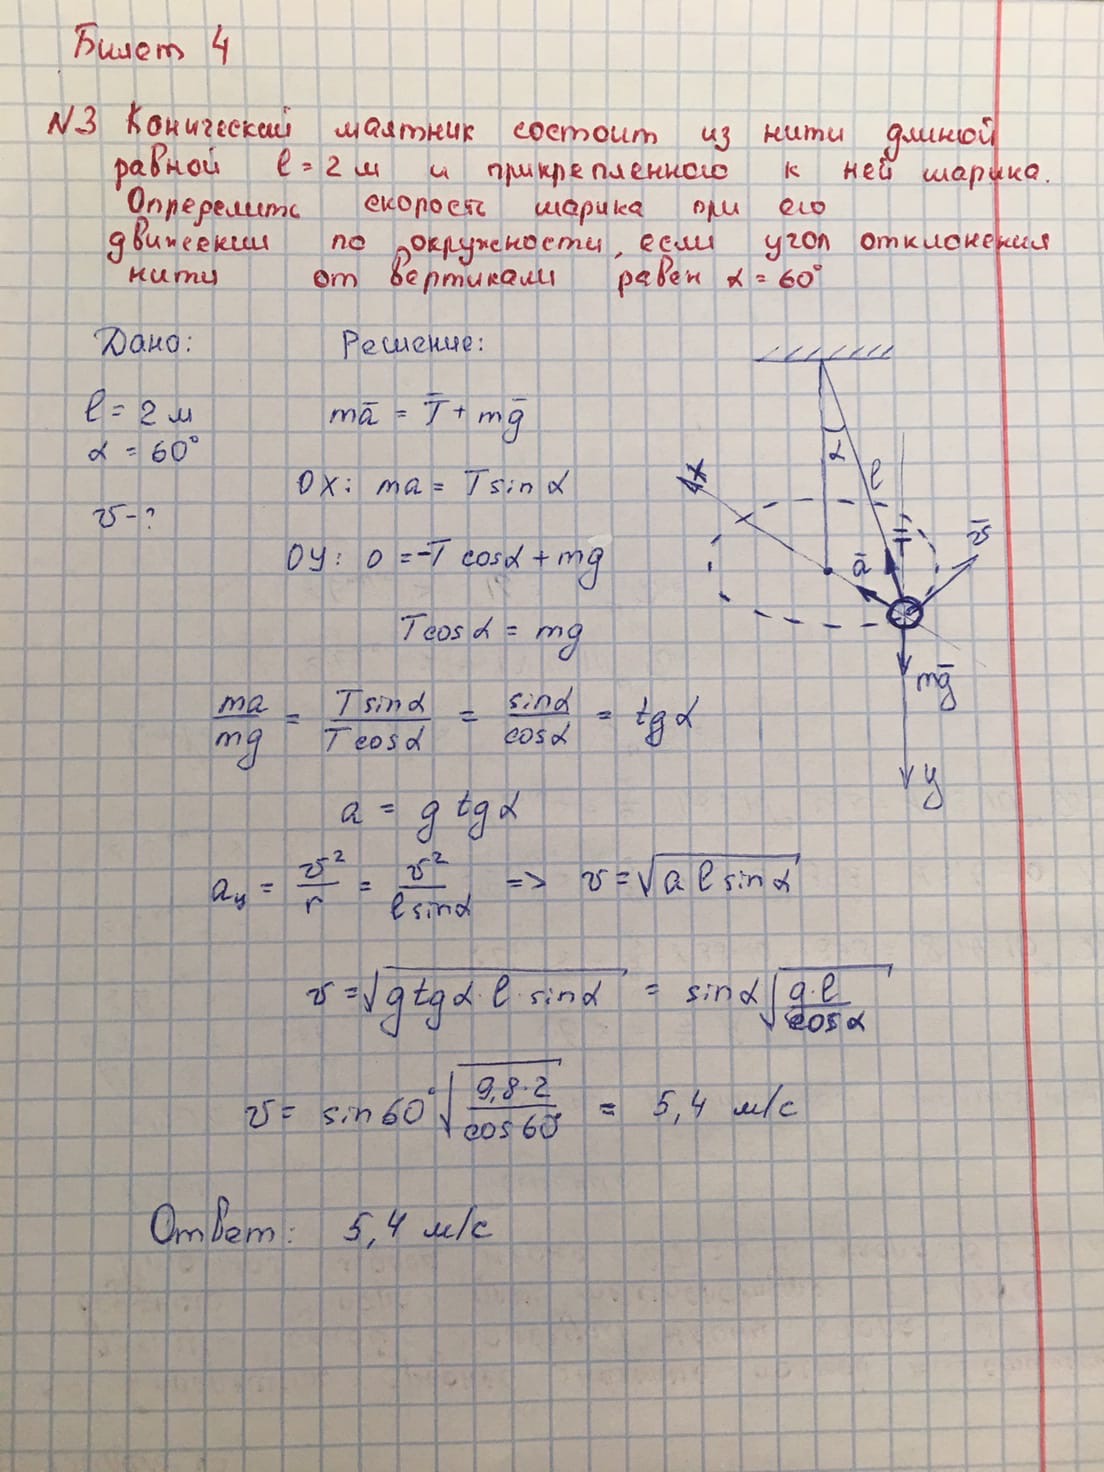 Билет 4
N3 Конический маятник состоит из нити длиной
равной l = 2 м и прикрепленного к ней шарика.
Определить скорость шарика при его
движении по окружности, если угол отклонения
нити от вертикали равен α = 60°
Дано: Решение:
l = 2 м
α = 60°
v - ?
mā = T̄ + mḡ
OX: ma = T sin α
OY: 0 = -T cos α + mg
T cos α = mg
ma/mg = T sin α / T cos α = sin α / cos α = tg α
a = g tg α
aц = v²/r = v²/(l sin α) => v = √(a l sin α)
v = √(g tg α · l · sin α) = sin α √(g·l / cos α)
v = sin 60° √(9,8·2 / cos 60°) = 5,4 м/с
Ответ: 5,4 м/с
α
l
x
ā
T̄
v̄
mḡ
y